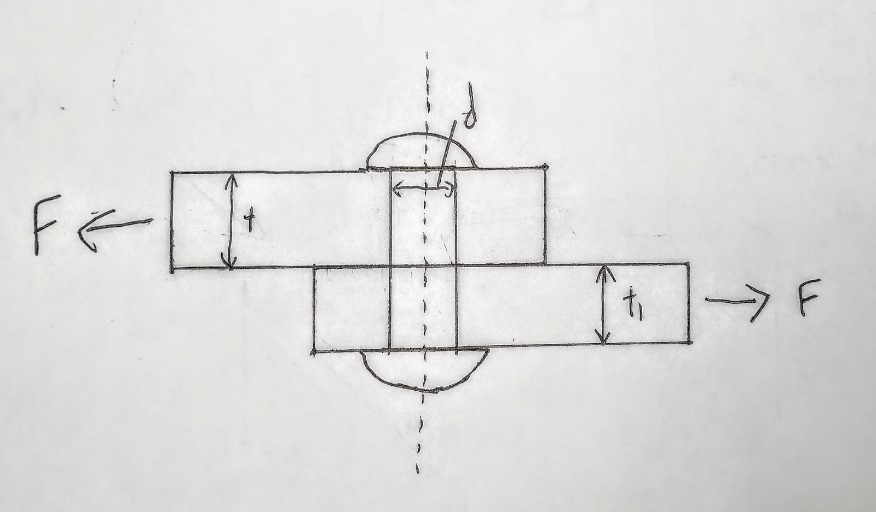 d
F
t
t₁
F